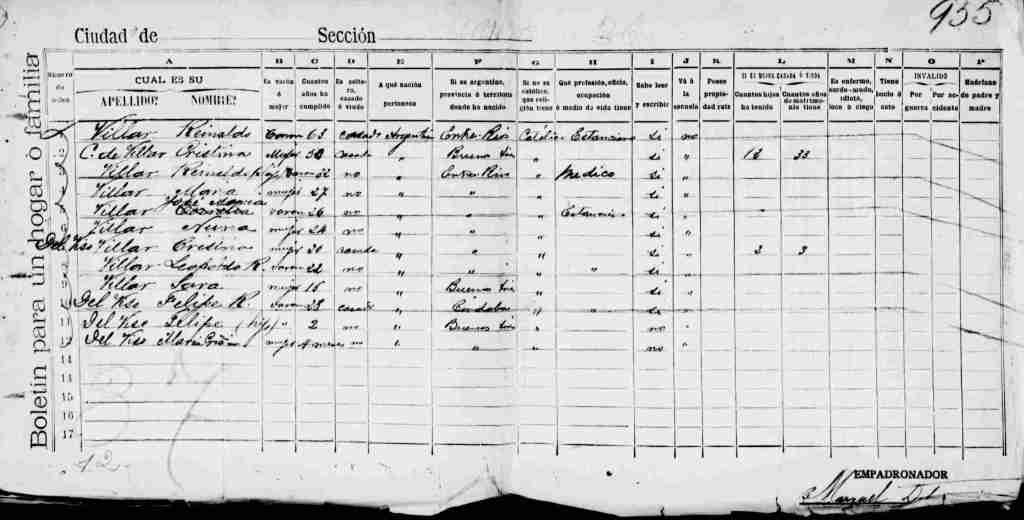 955
Ciudad de Sección
Boletín para un hogar ó familia
A B C D E F G H I J K L M N O P
Número de orden
CUAL ES SU APELLIDO? NOMBRE?
Es varón ó mujer
Cuantos años ha cumplido
Es soltero, casado ó viudo
A qué nación pertenece
Si es argentino, provincia ó territorio donde ha nacido
Si no es católico, que religión tiene
Qué profesión, oficio, ocupación ó medio de vida tiene
Sabe leer y escribir
Vá á la escuela
Posee propiedad raíz
SI ES MUJER CASADA Ó VIUDA
Cuantos hijos ha tenido
Cuantos años de matrimonio tiene
Es enfermo, sordo-mudo, idiota, loco ó ciego
Tiene
INVALIDO
Por guerra
Por accidente
Huérfano de padre y madre
Villar Reinaldo Varon 63 casado Argentin Entre Rios Católico Estanciero si no
C. de Villar Cristina Mujer 50 casada " Buenos Aires " si " 12 33
Villar Reinaldo hijo Varon 32 no " Entre Rios " Medico si "
Villar Maria mujer 27 no " " " si "
Villar José Maria varon 26 no " " " Estanciero si "
Villar mujer 24 no " " " si "
Del Viso Villar Cristina mujer 30 casada " " " si " 3 3
Villar Leopoldo R. Varon 22 no " " " " si "
Villar Sara mujer 16 no " Buenos Aires " si "
Del Viso Felipe R. Varon 28 casado " Córdoba " " si "
Del Viso Felipe (hijo) " 2 no " Buenos Aires " no "
Del Viso Maria mujer 4 meses no " " " no "
11
12
13
14
15
16
17
12
EMPADRONADOR
Manuel